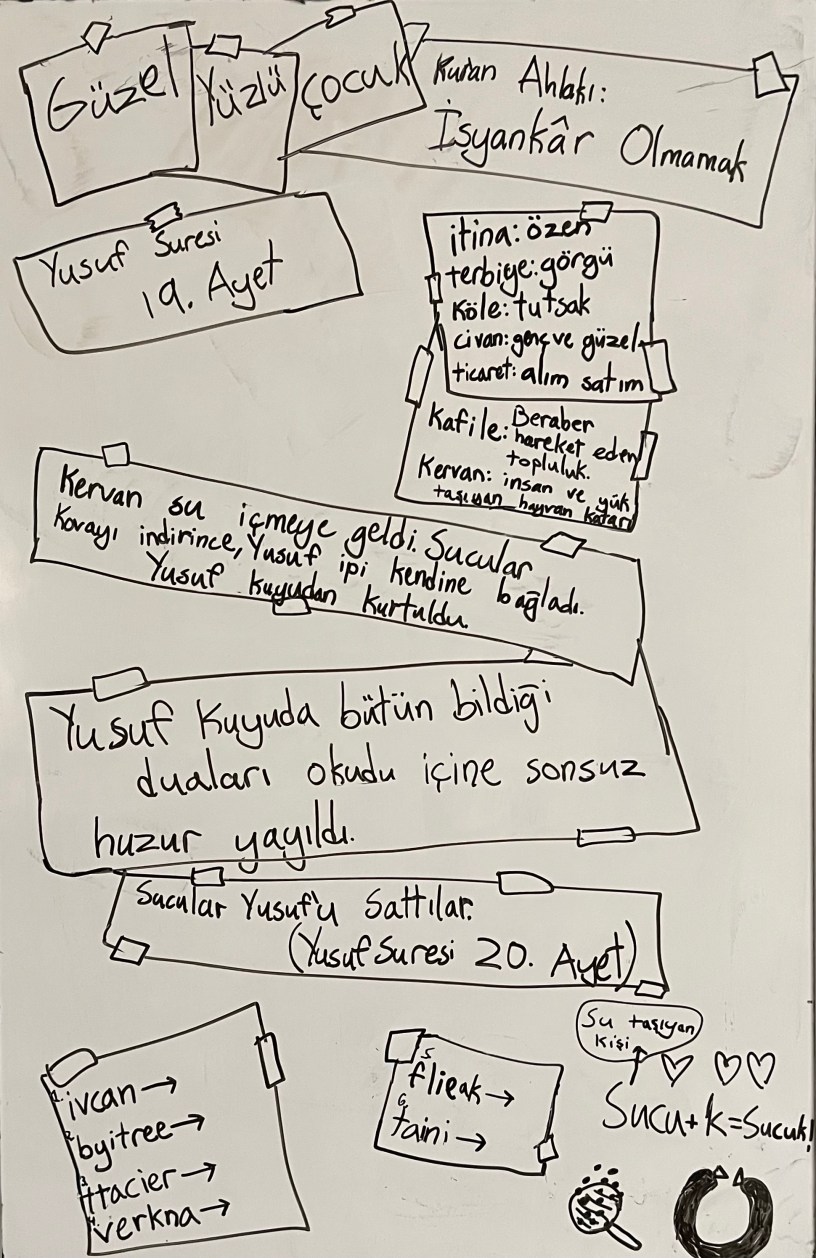 Güzel Yüzlü çocuk
Kur'an Ahlakı:
İsyankâr Olmamak
Yusuf Suresi
19. Ayet
itina: özen
terbiye: görgü
Köle: tutsak
civan: genç ve güzel
ticaret: alım satım
Kafile: Beraber
hareket eden
topluluk.
Kervan: insan ve yük
taşıyan hayvan katarı
Kervan su içmeye geldi. Sucular
Kovayı indirince, Yusuf ipi kendine bağladı.
Yusuf kuyudan kurtuldu.
Yusuf Kuyuda bütün bildiği
duaları okudu içine sonsuz
huzur yayıldı.
Sucular Yusuf'u Sattılar.
(Yusuf Suresi 20. Ayet)
1. ivcan→
2. byitree→
3. ttacier→
4. verkna→
5. flieak→
6. taini→
Su taşıyan
kişi
Sucu+k=Sucuk!